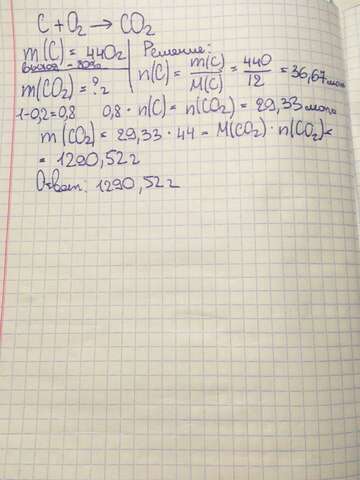 C + O₂ → CO₂
m(C) = 440г
выход - 80%
m(CO₂) = ? г
Решение:
n(C) = m(C)/M(C) = 440/12 = 36,67 моль
1-0,2=0,8 0,8 · n(C) = n(CO₂) = 29,33 моль
m(CO₂) = 29,33 · 44 = M(CO₂) · n(CO₂) =
= 1290,52 г
Ответ: 1290,52 г